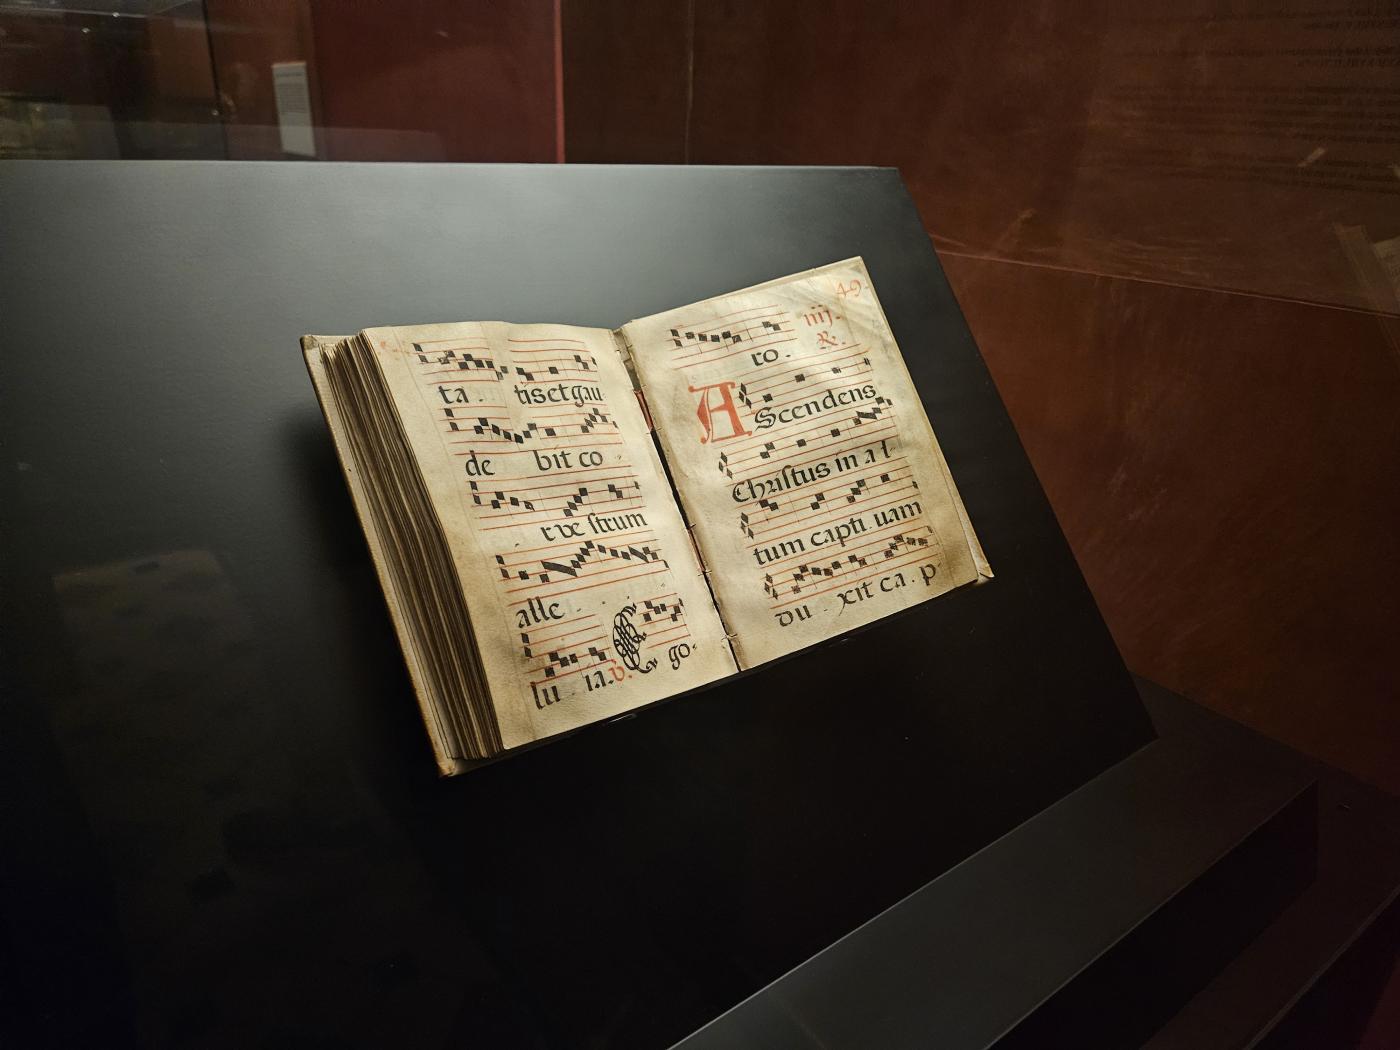 ta. tiset gau
de bit co
r ve ſtrum
alle
lu ia. v. E go.
49.
iiij.
ro. R.
AScendens
Chriſtus in a l
tum capti. uam
du. xit ca. p